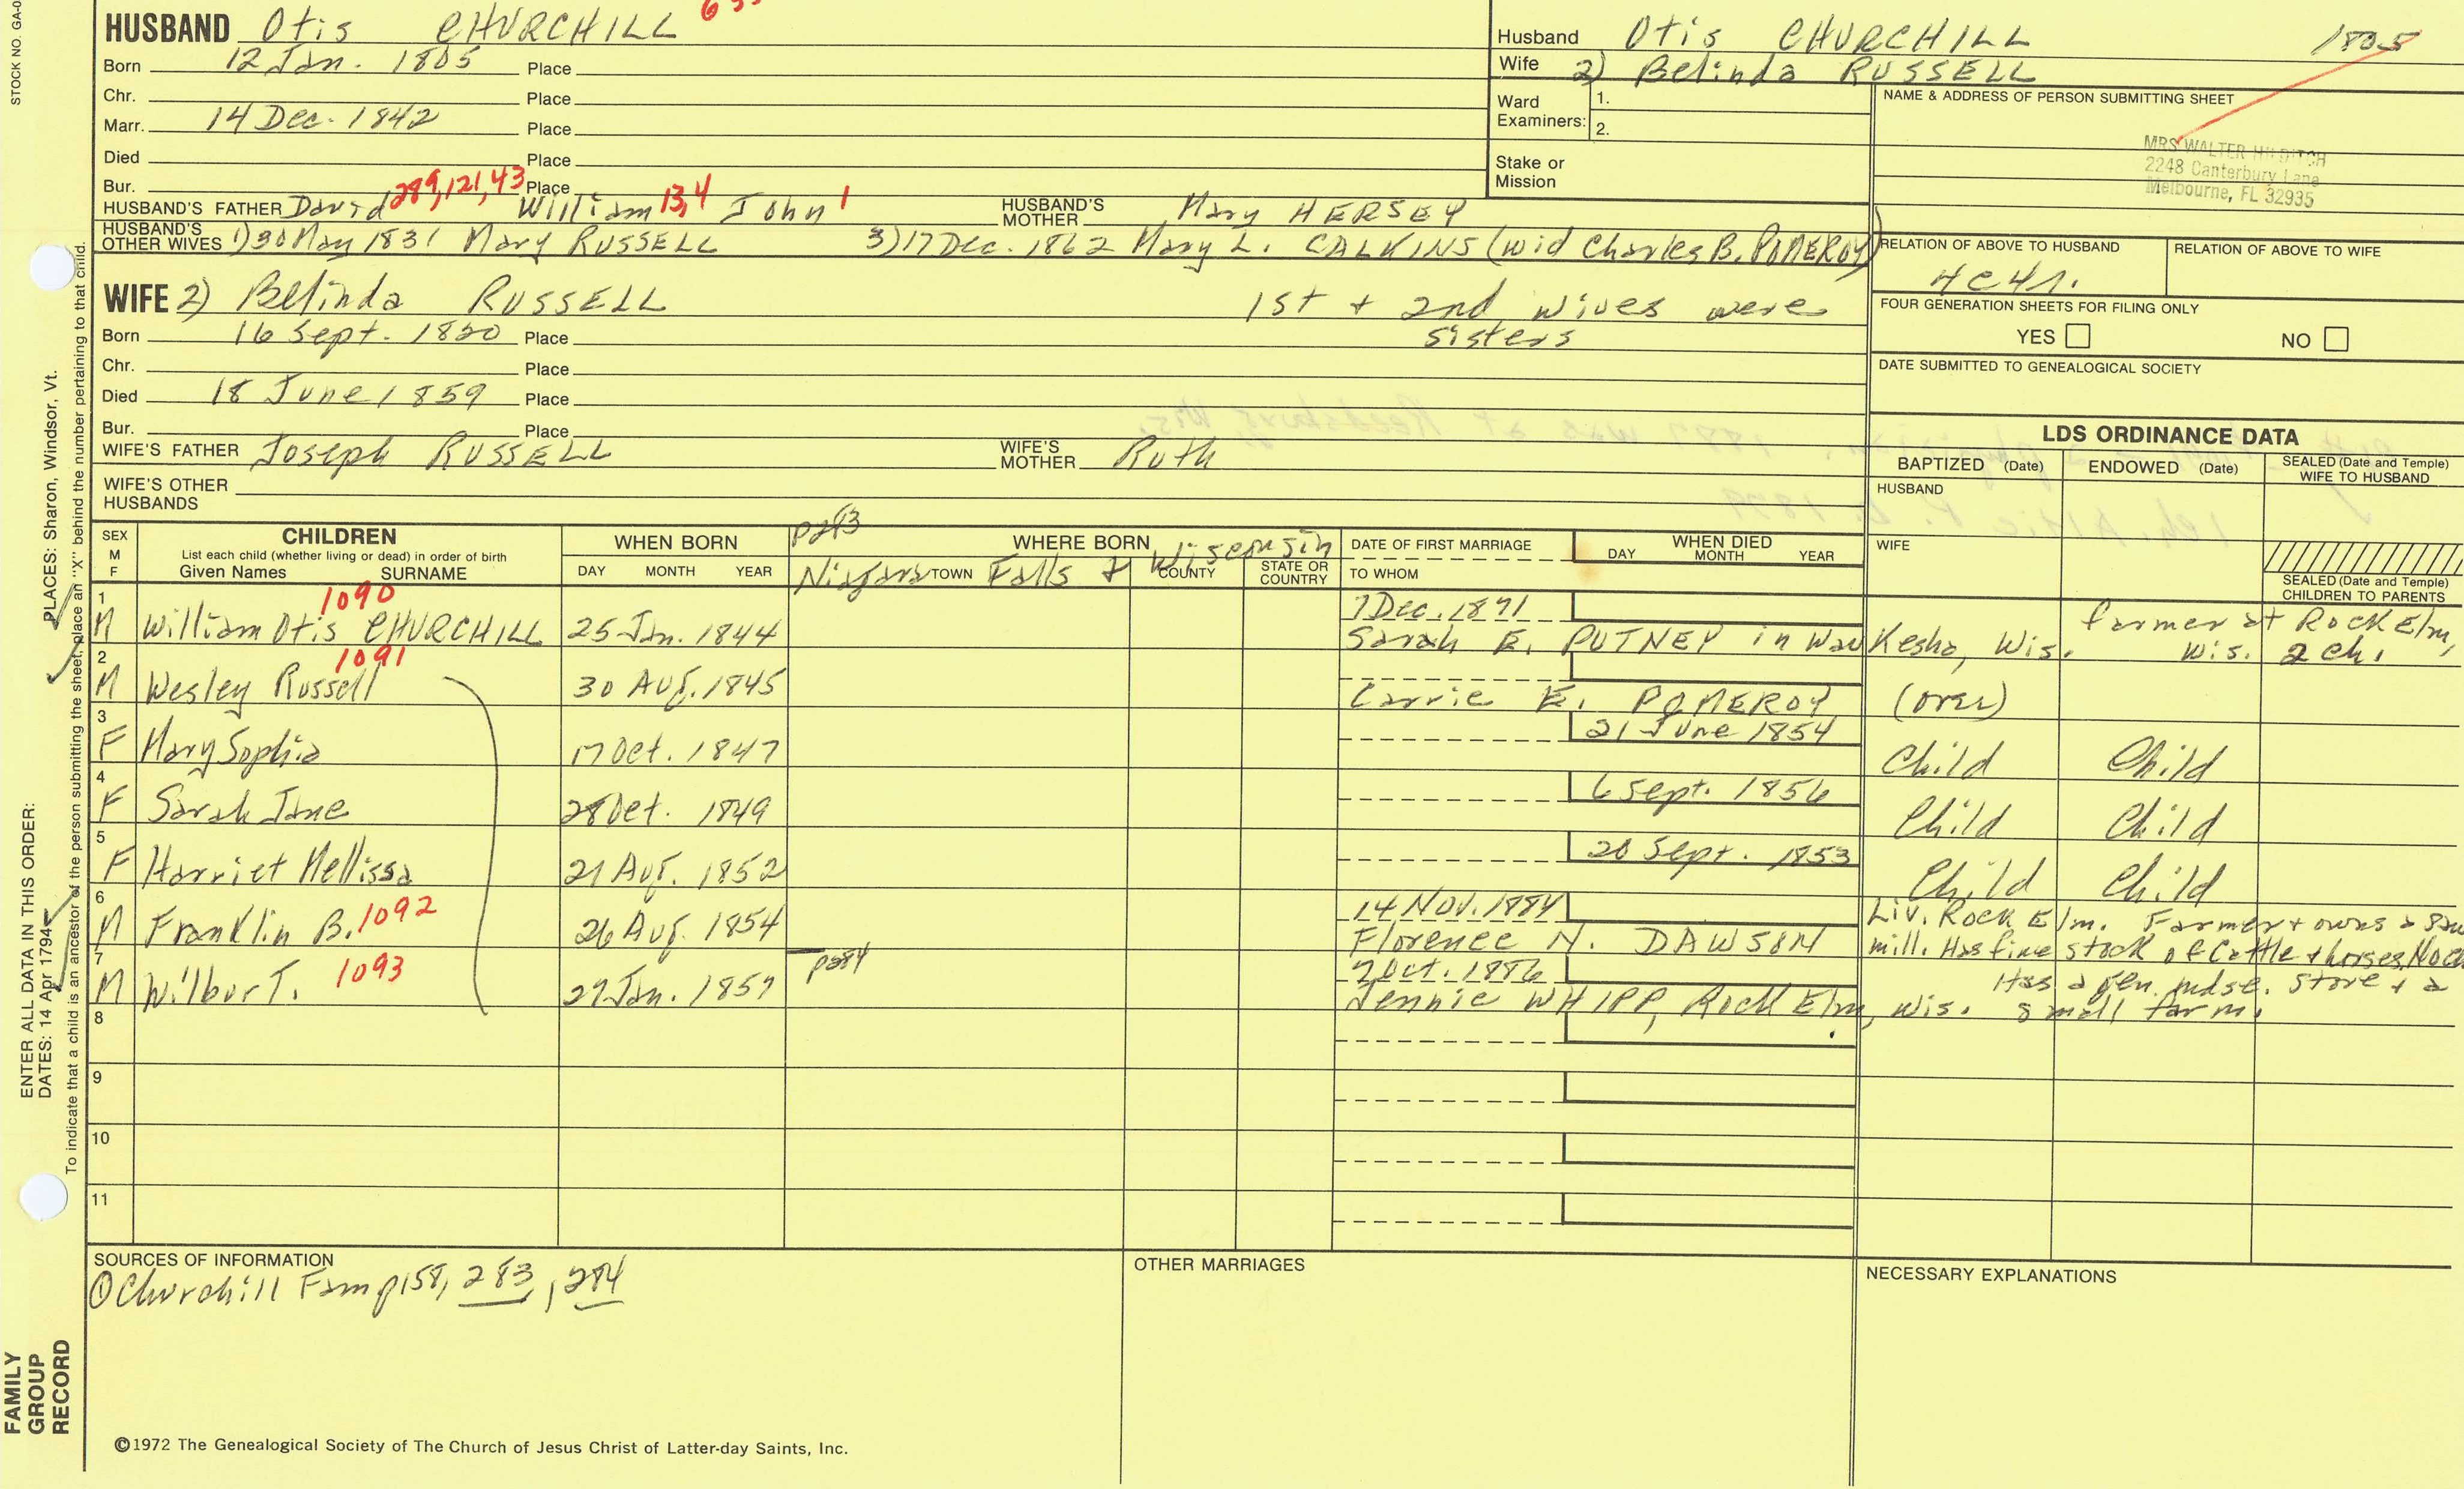 STOCK NO. GA-0
HUSBAND Otis CHURCHILL
Born 12 Jan. 1805 Place
Chr. Place
Marr. 14 Dec. 1842 Place
Died Place
Bur. Place
HUSBAND'S FATHER David 289,121,43 William 13,4 John 1 HUSBAND'S MOTHER Mary HERSEY
HUSBAND'S OTHER WIVES 1) 30 May 1831 Mary RUSSELL 3) 17 Dec. 1862 Mary L. CALKINS (wid Charles B. POMEROY)
Husband Otis CHURCHILL 1805
Wife 2) Belinda RUSSELL
Ward Examiners: 1.
2.
Stake or Mission
NAME & ADDRESS OF PERSON SUBMITTING SHEET
MRS WALTER HILDITCH
2248 Canterbury Lane
Melbourne, FL 32935
RELATION OF ABOVE TO HUSBAND RELATION OF ABOVE TO WIFE
4C4r.
FOUR GENERATION SHEETS FOR FILING ONLY
YES NO
DATE SUBMITTED TO GENEALOGICAL SOCIETY
WIFE 2) Belinda RUSSELL 1st + 2nd wives were
sisters
Born 16 Sept. 1820 Place
Chr. Place
Died 18 June 1859 Place
Bur. Place
WIFE'S FATHER Joseph RUSSELL WIFE'S MOTHER Ruth
WIFE'S OTHER HUSBANDS
LDS ORDINANCE DATA
BAPTIZED (Date) ENDOWED (Date) SEALED (Date and Temple) WIFE TO HUSBAND
HUSBAND
WIFE
SEALED (Date and Temple) CHILDREN TO PARENTS
SEX M F
CHILDREN
List each child (whether living or dead) in order of birth
Given Names SURNAME
WHEN BORN
DAY MONTH YEAR
p283
WHERE BORN
TOWN COUNTY STATE OR COUNTRY
Niagara Falls & Wisconsin
DATE OF FIRST MARRIAGE
TO WHOM
WHEN DIED
DAY MONTH YEAR
1 M William Otis CHURCHILL 1090 25 Jan. 1844 7 Dec. 1871 Sarah E. PUTNEY in Waukesha, Wis. farmer at Rock Elm, Wis. 2 ch.
2 M Wesley Russell 1091 30 Aug. 1845 Carrie E. POMEROY (over)
3 F Mary Sophia 17 Oct. 1847 21 June 1854 Child Child
4 F Sarah Jane 28 Oct. 1849 6 Sept. 1856 Child Child
5 F Harriet Mellissa 21 Aug. 1852 20 Sept. 1853 Child Child
6 M Franklin B. 1092 26 Aug. 1854 14 Nov. 1884 Florence N. DAWSON Liv. Rock Elm. Farmer + owns a saw mill. Has fine stock of Cattle + horses. No ch
7 M Wilbur T. 1093 27 Jan. 1857 p284 7 Oct. 1886 Jennie WHIPP, Rock Elm, Wis. Has a gen. mdse. store + a small farm.
8
9
10
11
SOURCES OF INFORMATION
① Churchill Fam p158, 283, 284
OTHER MARRIAGES
NECESSARY EXPLANATIONS
©1972 The Genealogical Society of The Church of Jesus Christ of Latter-day Saints, Inc.
FAMILY GROUP RECORD
ENTER ALL DATA IN THIS ORDER:
DATES: 14 Apr 1794
PLACES: Sharon, Windsor, Vt.
To indicate that a child is an ancestor of the person submitting the sheet, place an "X" behind the number pertaining to that child.